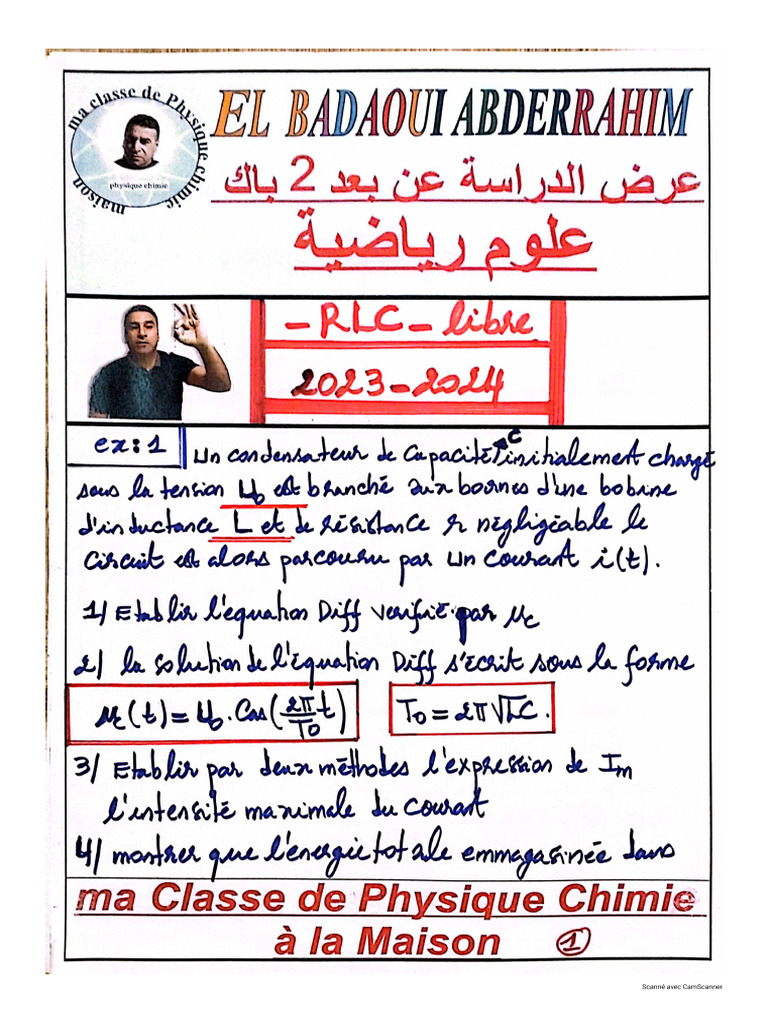 ma classe de Physique chimie
maison
physique chimie
EL BADAOUI ABDERRAHIM
عرض الدراسة عن بعد 2 باك
علوم رياضية
- RLC - libre
2023-2024
ex: 1 Un condensateur de capacité C initialement chargé
sous la tension U₀ est branché aux bornes d'une bobine
d'inductance L et de résistance r négligéable le
circuit est alors parcouru par un courant i(t).
1/ Etablir l'équation Diff verifié par uc
2/ la solution de l'équation Diff s'écrit sous la forme
uc(t) = U₀ . Cos(2π/T₀ t) T₀ = 2π√LC .
3/ Etablir par deux méthodes l'expression de Im
l'intensité maximale du courant
4/ montrer que l'énergie totale emmagasinée dans
ma Classe de Physique Chimie
à la Maison 1
Scanné avec CamScanner